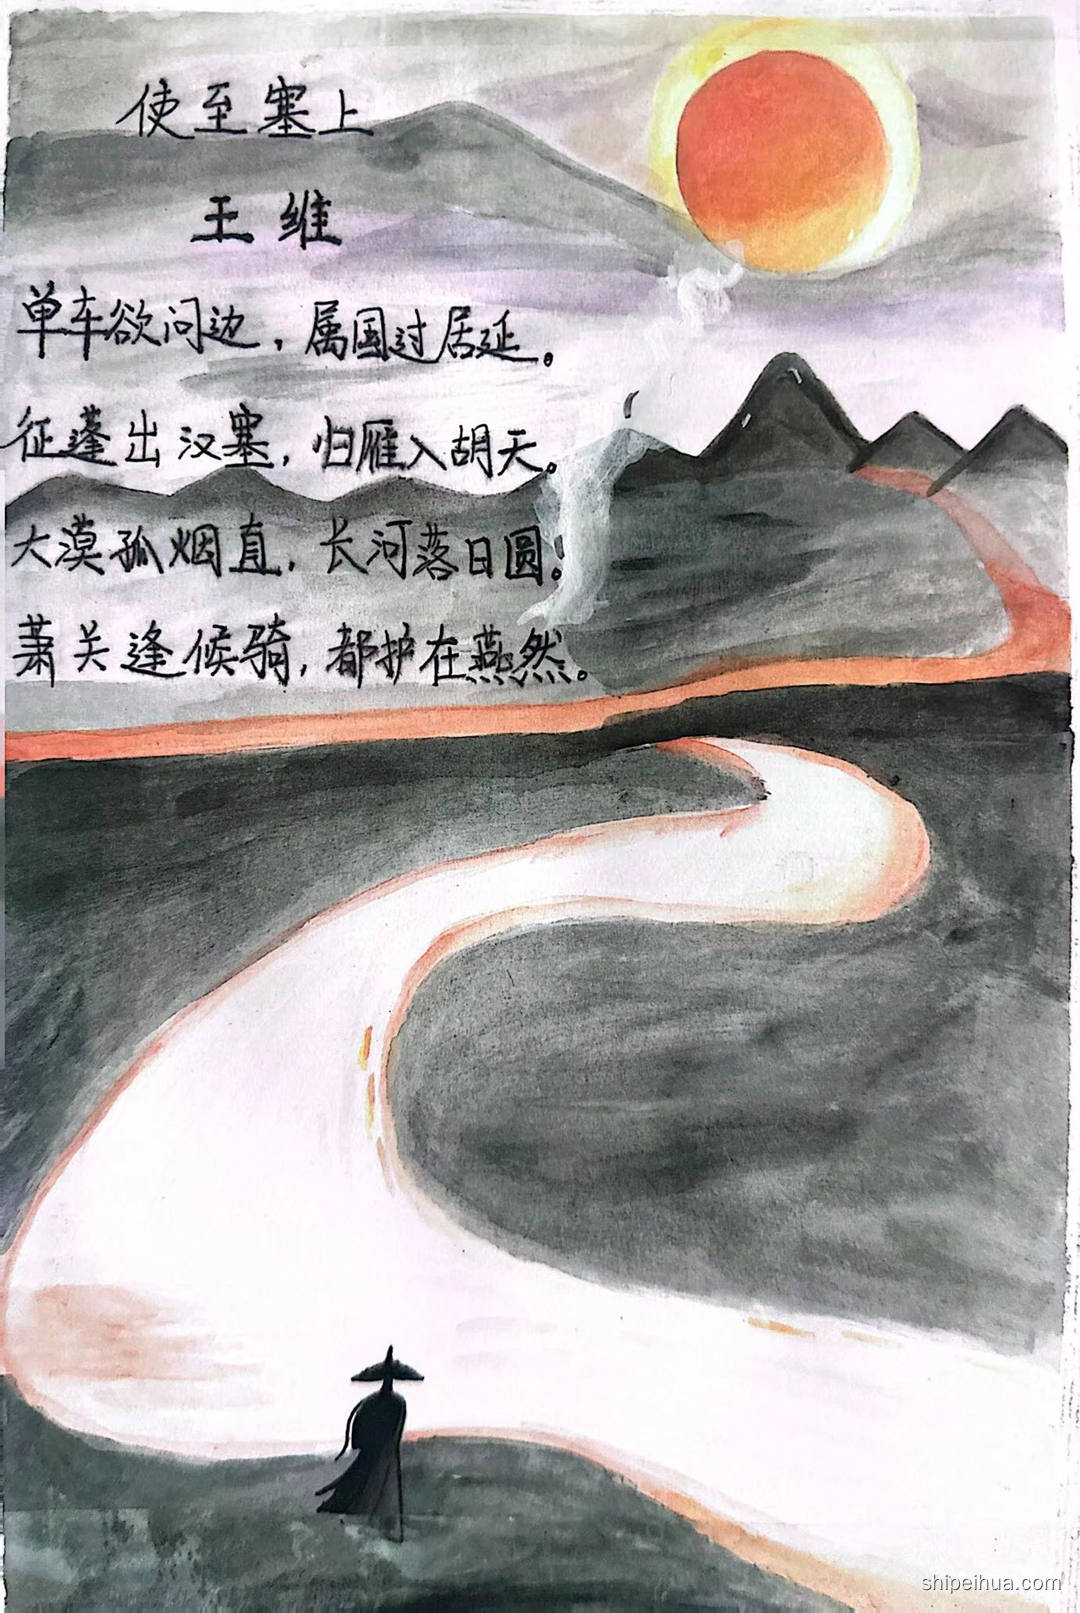 使至塞上
王维
单车欲问边，属国过居延。
征蓬出汉塞，归雁入胡天。
大漠孤烟直，长河落日圆。
萧关逢候骑，都护在燕然。
shipeihua.com